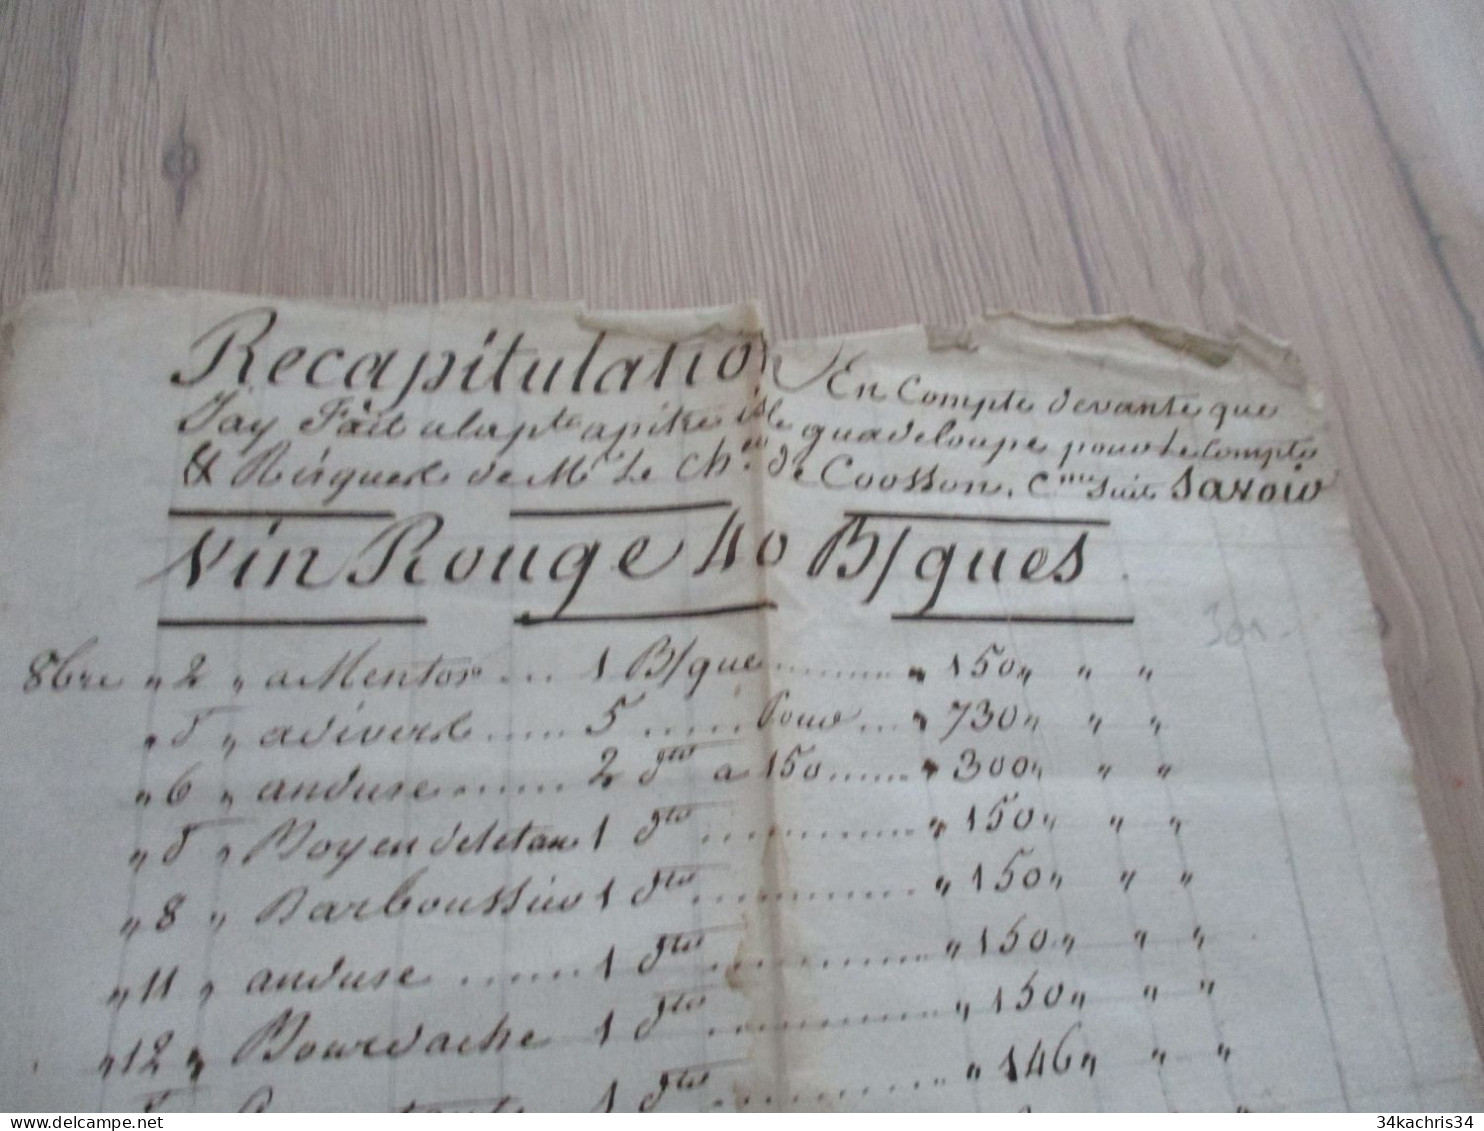 Recapitulation En Compte devante que
Jay Fait alapte apitre isle guadeloupe pour Le Compte
& Risques de Mr Le Cher de Coosson, Cme Suit Savoir
Vin Rouge 40 B/ques
8bre " 2 " a Mentor ... 1 B/que ......... " 150 " " "
" d " a divers ...... 5 ...... Pour ... " 730 " " "
" 6 " anduse ....... 2 dto a 150 ...... " 300 " " "
" d " Boyer deletan 1 dto ............ " 150 " " "
" 8 " Barboussier 1 dto ............ " 150 " " "
" 11 " anduse ...... 1 dto ............ " 150 " " "
" 12 " Bourdache 1 dto ............ " 150 " " "
1 dto ............ " 146 " " "
delcampe.net
34kachris34